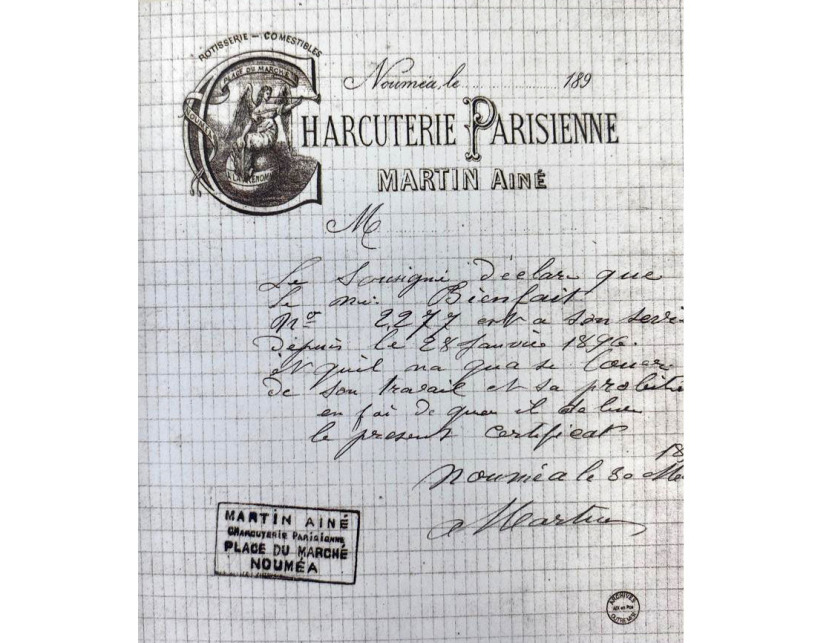 ROTISSERIE – COMESTIBLES
PLACE DU MARCHÉ
Nouméa, le 189
CHARCUTERIE PARISIENNE
MARTIN AINÉ
A LA RENOMMÉE
M
Le Sousigné déclare que
le né. Bienfait
No 2277 est a son servi
depuis le 28 Janvie 1896.
et quil na qua se louer
de son travail et sa probite
en foi de quoi il
le present certificat
18
Nouméa le 30 Ma
Martin
MARTIN AINÉ
CHARCUTERIE PARISIENNE
PLACE DU MARCHÉ
NOUMÉA
ARCHIVES
OUTREMER